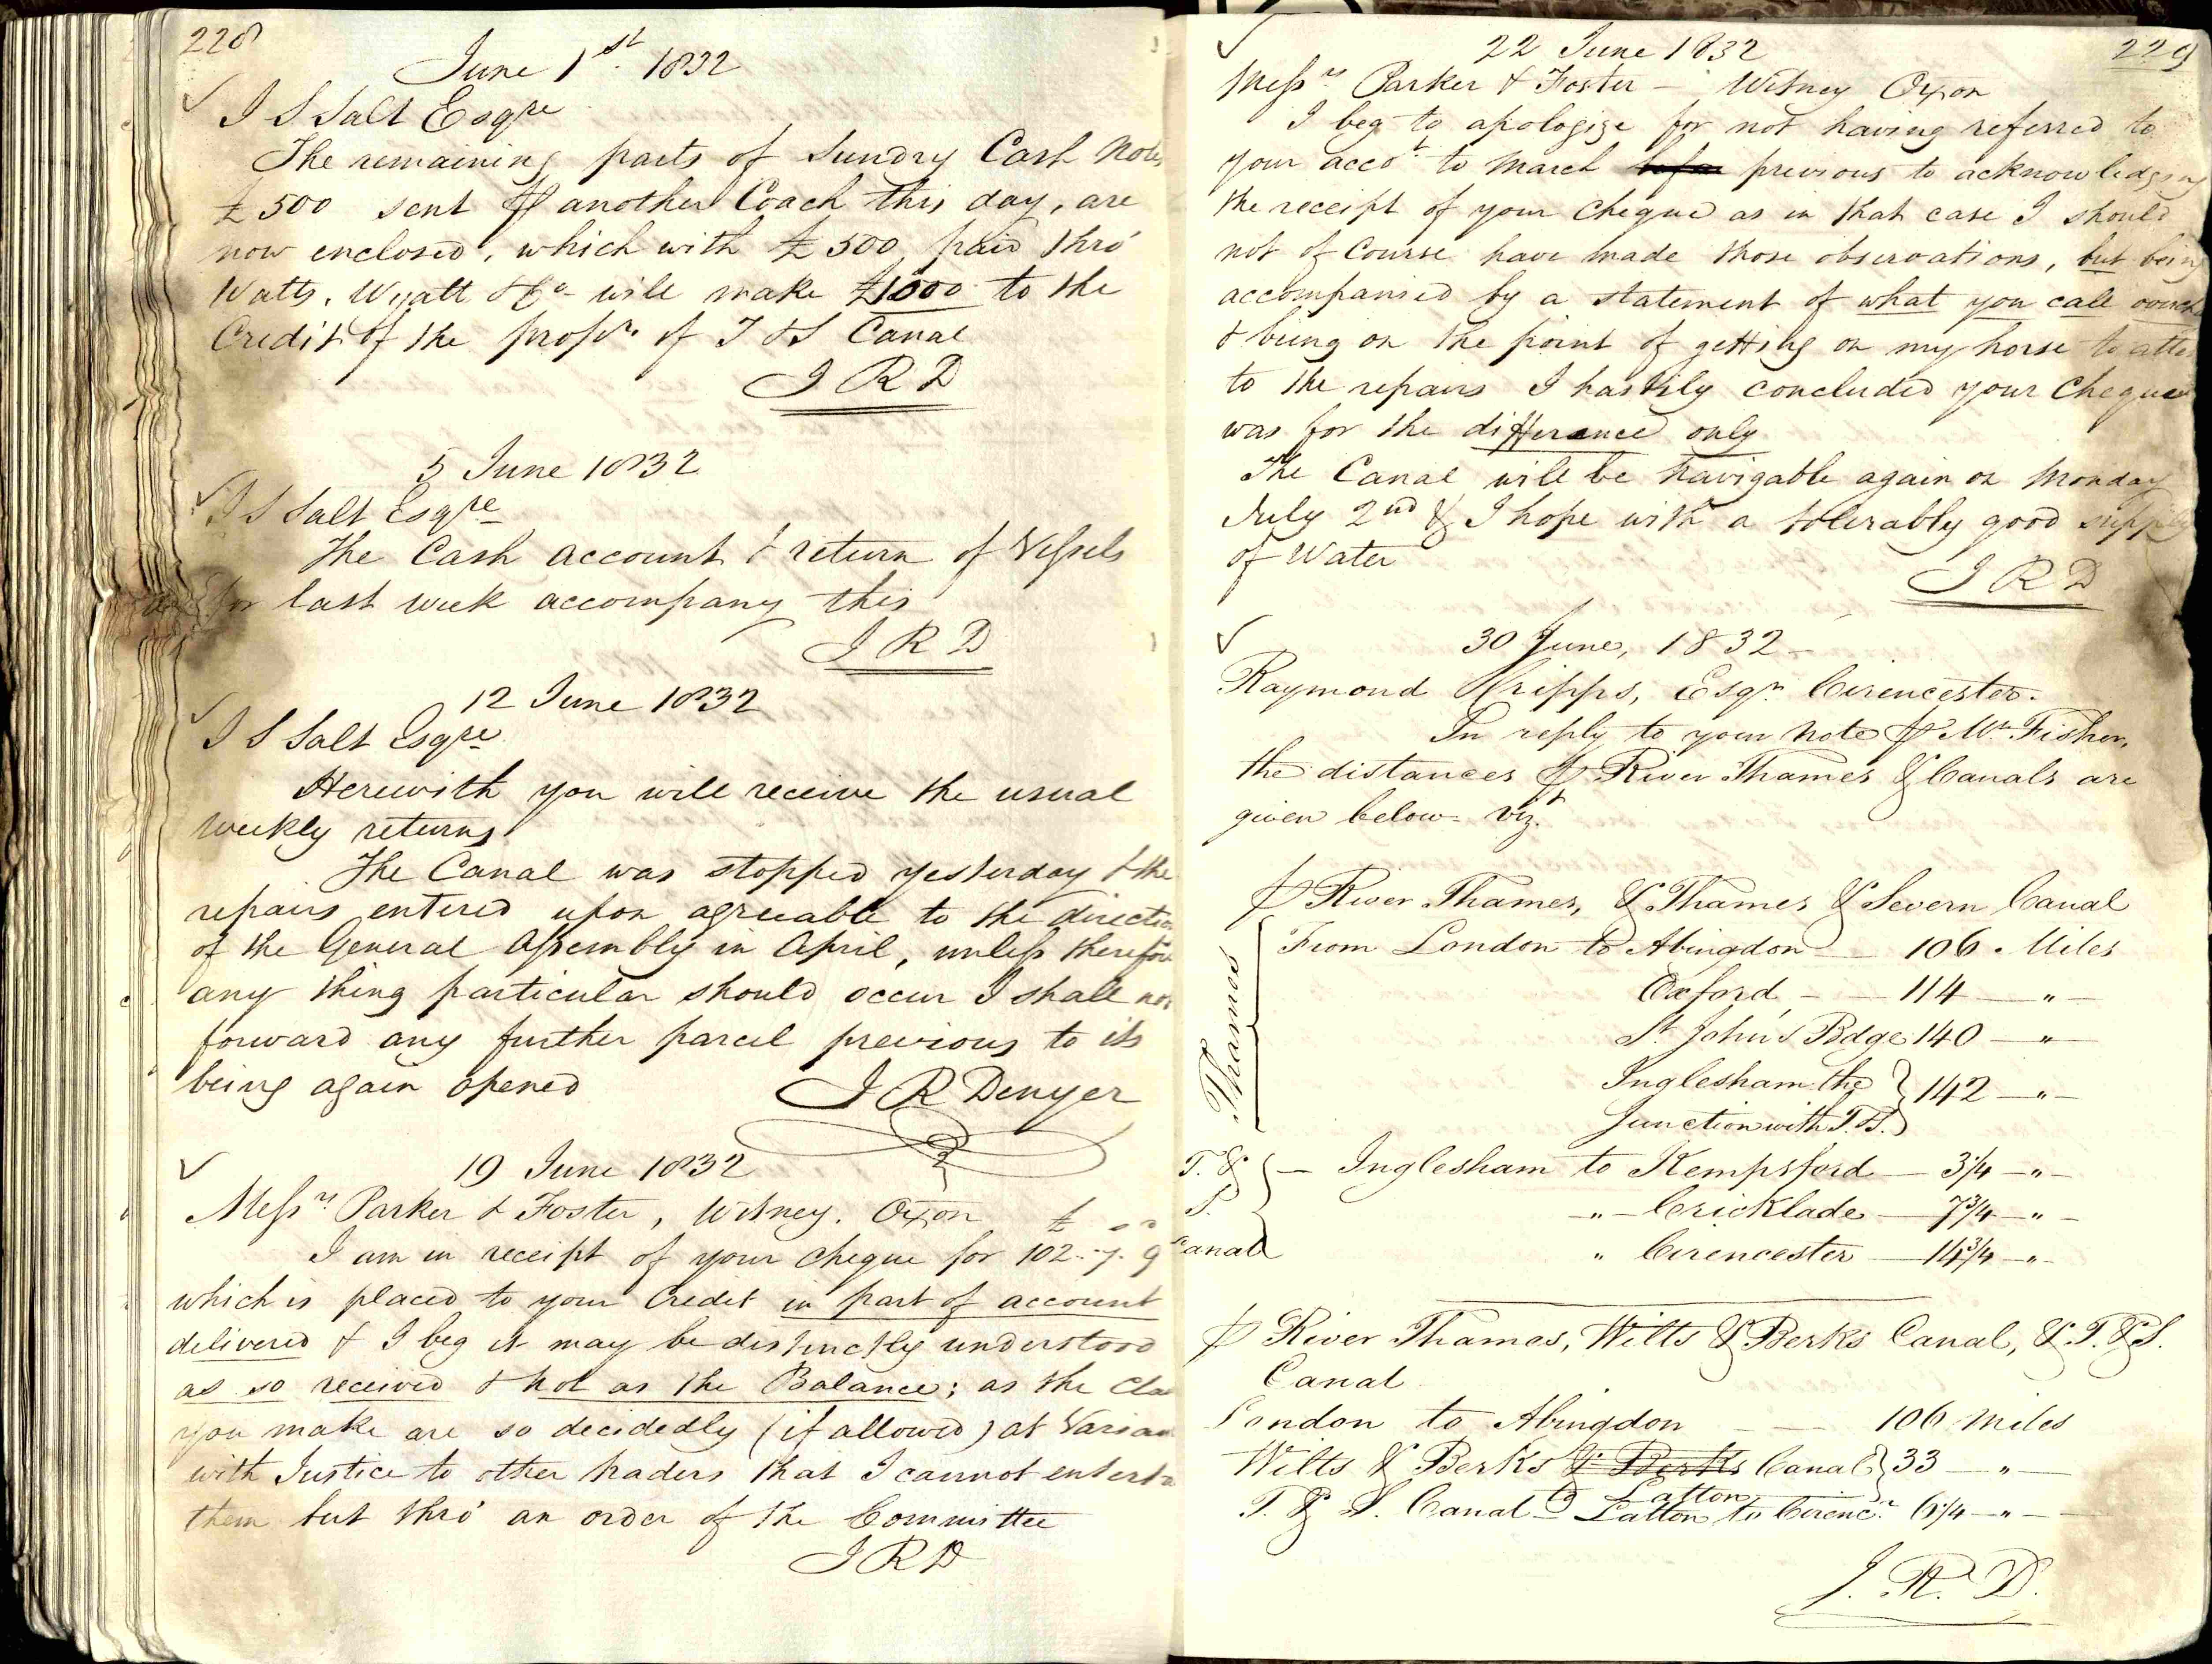 228
June 1st. 1832
✓
I S Salt Esqre
The remaining parts of Sundry Cash Notes
£500 sent ⅌ another Coach this day, are
now enclosed, which with £500 paid thro'
Watts, Wyatt & Co- will make £1000 to the
Credit of the propr. of T & S Canal
J R D
5 June 1832
✓ I S Salt Esqre
The Cash account & return of Vessels
for last week accompany this
J R D
12 June 1832
✓
I S Salt Esqre
Herewith you will receive the usual
weekly returns
The Canal was stopped yesterday & the
repairs entered upon agreeable to the directio
of the General Assembly in April, unless therefore
any thing particular should occur I shall not
forward any further parcel previous to its
being again opened J R Denyer
19 June 1832
✓
Messrs Parker & Foster, Witney. Oxon
I am in receipt of your cheque for £102..7. 9
which is placed to your Credit in part of account
delivered & I beg it may be distinctly understood
as so received & not as the Balance; as the Cla
you make are so decidedly (if allowed) at Varian
with Justice to other traders that I cannot enterta
them but thro' an order of the Committee
J R D
✓ 22 June 1832 229
Messrs Parker & Foster - Witney Oxon
I beg to apologize for not having referred to
your accot to March befor previous to acknowledging
the receipt of your Cheque as in that case I should
not of Course have made those observations, but being
accompanied by a statement of what you call overch
& being on the point of getting on my horse to atte
to the repairs I hastily concluded your Cheque
was for the differance only
The Canal will be navigable again on Monday
July 2nd & I hope with a tolerably good supply
of Water
J R D
✓ 30 June, 1832 -
Raymond Cripps, Esqr. Cirencester.
In reply to your note ⅌ Mr. Fisher,
the distances ⅌ River Thames & Canals are
given below= vizt.
⅌ River Thames, & Thames & Severn Canal
Thames
From London to Abingdon - 106. Miles
Oxford - - 114 - " -
St. John's Bdge 140 - " -
Inglesham the } 142 - " -
Junction with T. & S. }
T. & } - Inglesham to Kempsford - 3¼ - " -
S. } - " - Cricklade - 7¾ - " -
Canal " Cirencester - 14¾ - " -
⅌ River Thames, Wilts & Berks Canal, & T. & S.
Canal
London to Abingdon - - 106 Miles
Wilts & Berks & Berks Canal } 33 - " -
to Latton
T. & S. Canal Latton to Cirencr. 6¼ - " -
J. R. D.